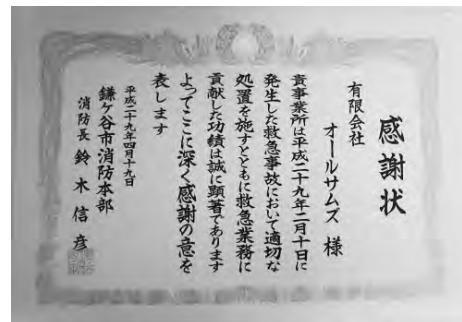 感謝状
有限会社
オールサムズ 様
貴事業所は平成二十九年二月十日に
発生した救急事故において適切な
処置を施すとともに救急業務に
貢献した功績は誠に顕著であります
よってここに深く感謝の意を
表します
平成二十九年四月十九日
鎌ケ谷市消防本部
消防長 鈴木信彦